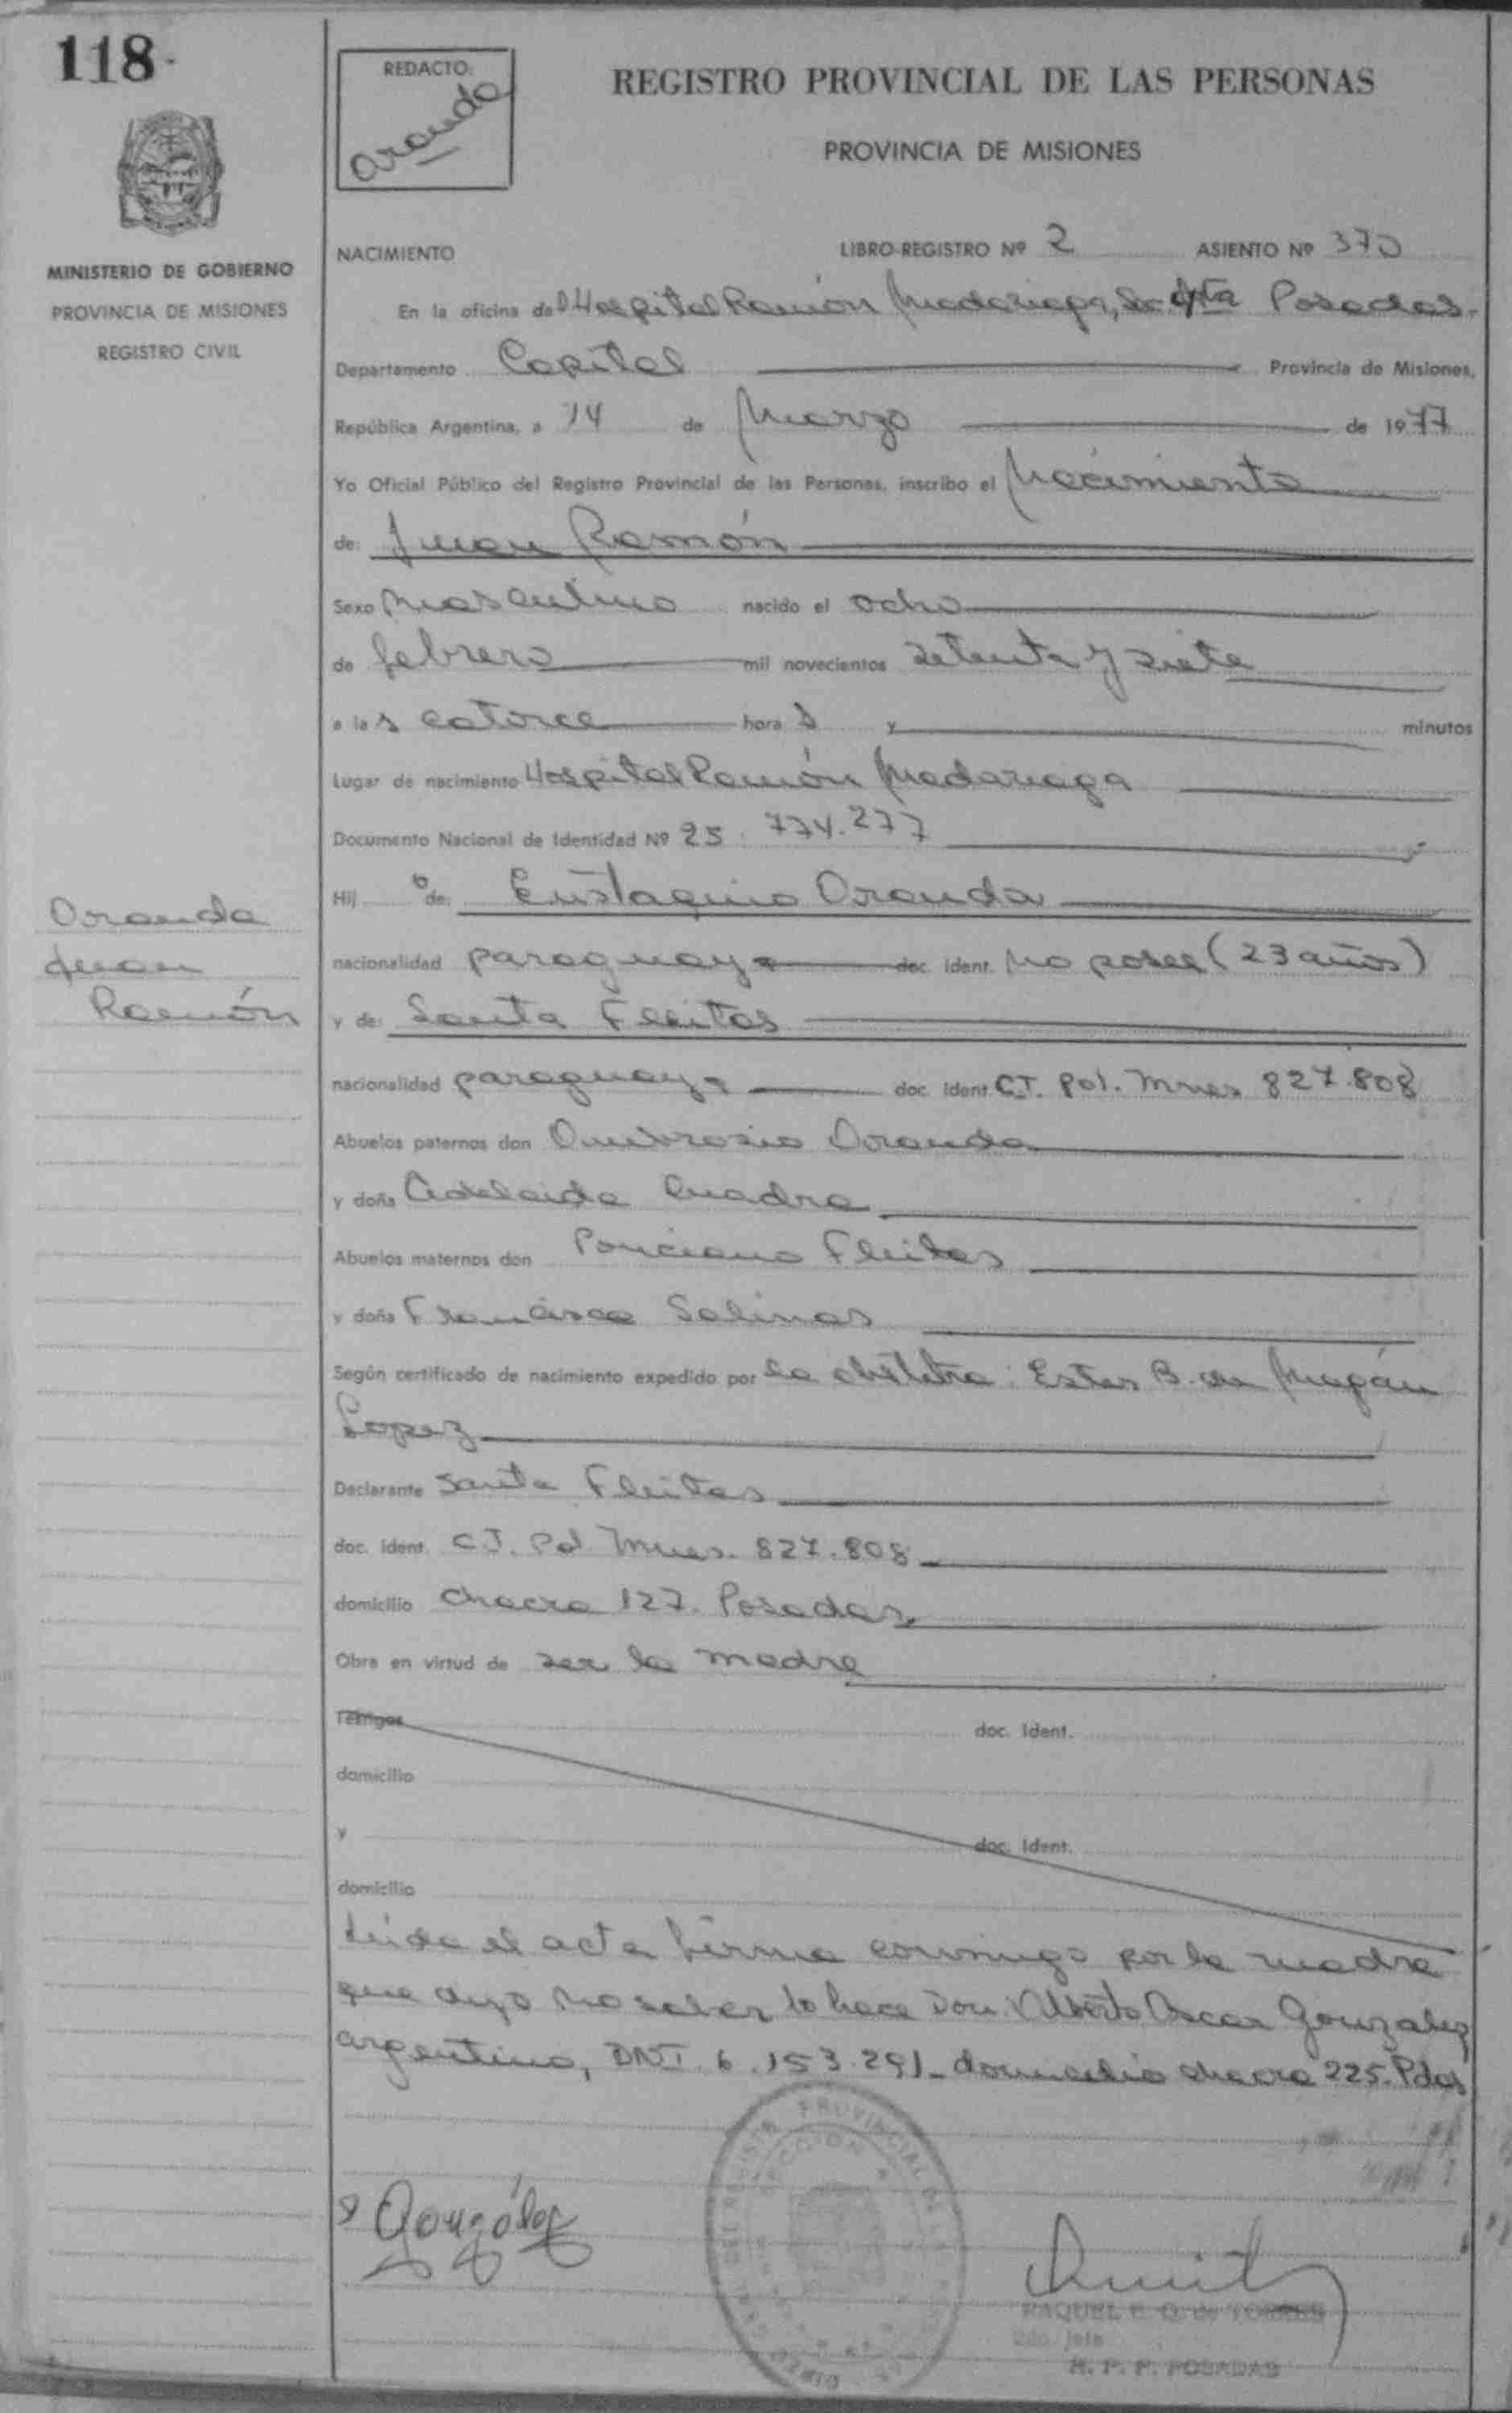 118.
REDACTO:
Aranda
REGISTRO PROVINCIAL DE LAS PERSONAS
PROVINCIA DE MISIONES
MINISTERIO DE GOBIERNO
PROVINCIA DE MISIONES
REGISTRO CIVIL
NACIMIENTO LIBRO-REGISTRO Nº 2 ASIENTO Nº 370
En la oficina del Hospital Ramón Madariaga, Sec. 4ta Posadas.
Departamento Capital Provincia de Misiones,
República Argentina, a 14 de Marzo de 1977
Yo Oficial Público del Registro Provincial de las Personas, inscribo el Nacimiento
de: Juan Ramón
Sexo Masculino nacido el ocho
de febrero mil novecientos setenta y siete
a las catorce horas y minutos
Lugar de nacimiento Hospital Ramón Madariaga
Documento Nacional de Identidad Nº 25.774.277
Hijo de: Eustaquio Aranda
Aranda
Juan
Ramón
nacionalidad paraguaya doc. ident. No posee (23 años)
y de: Santa Fleitas
nacionalidad paraguaya doc. ident. C.I. Pol. Mnes 827.808
Abuelos paternos don Ambrosio Aranda
y doña Adelaida Cuadra
Abuelos maternos don Ponciano Fleitas
y doña Francisca Salinas
Según certificado de nacimiento expedido por la obstetra: Ester B. de Magán
Lopez
Declarante Santa Fleitas
doc. ident. C.I. Pol. Mnes. 827.808
domicilio Chacra 127. Posadas
Obra en virtud de ser la madre
Testigos doc. Ident.
domicilio
y doc. Ident.
domicilio
Leída el acta firma conmigo por la madre
que dijo no saber lo hace Don: Alberto Oscar Gonzalez
argentino, DNI 6.153.291 - domicilio chacra 225. Pdas
González
PROVINCIAL DE
SECCION
RAQUEL E. Q. de TORRES
2do. Jefe
R. P. P. POSADAS